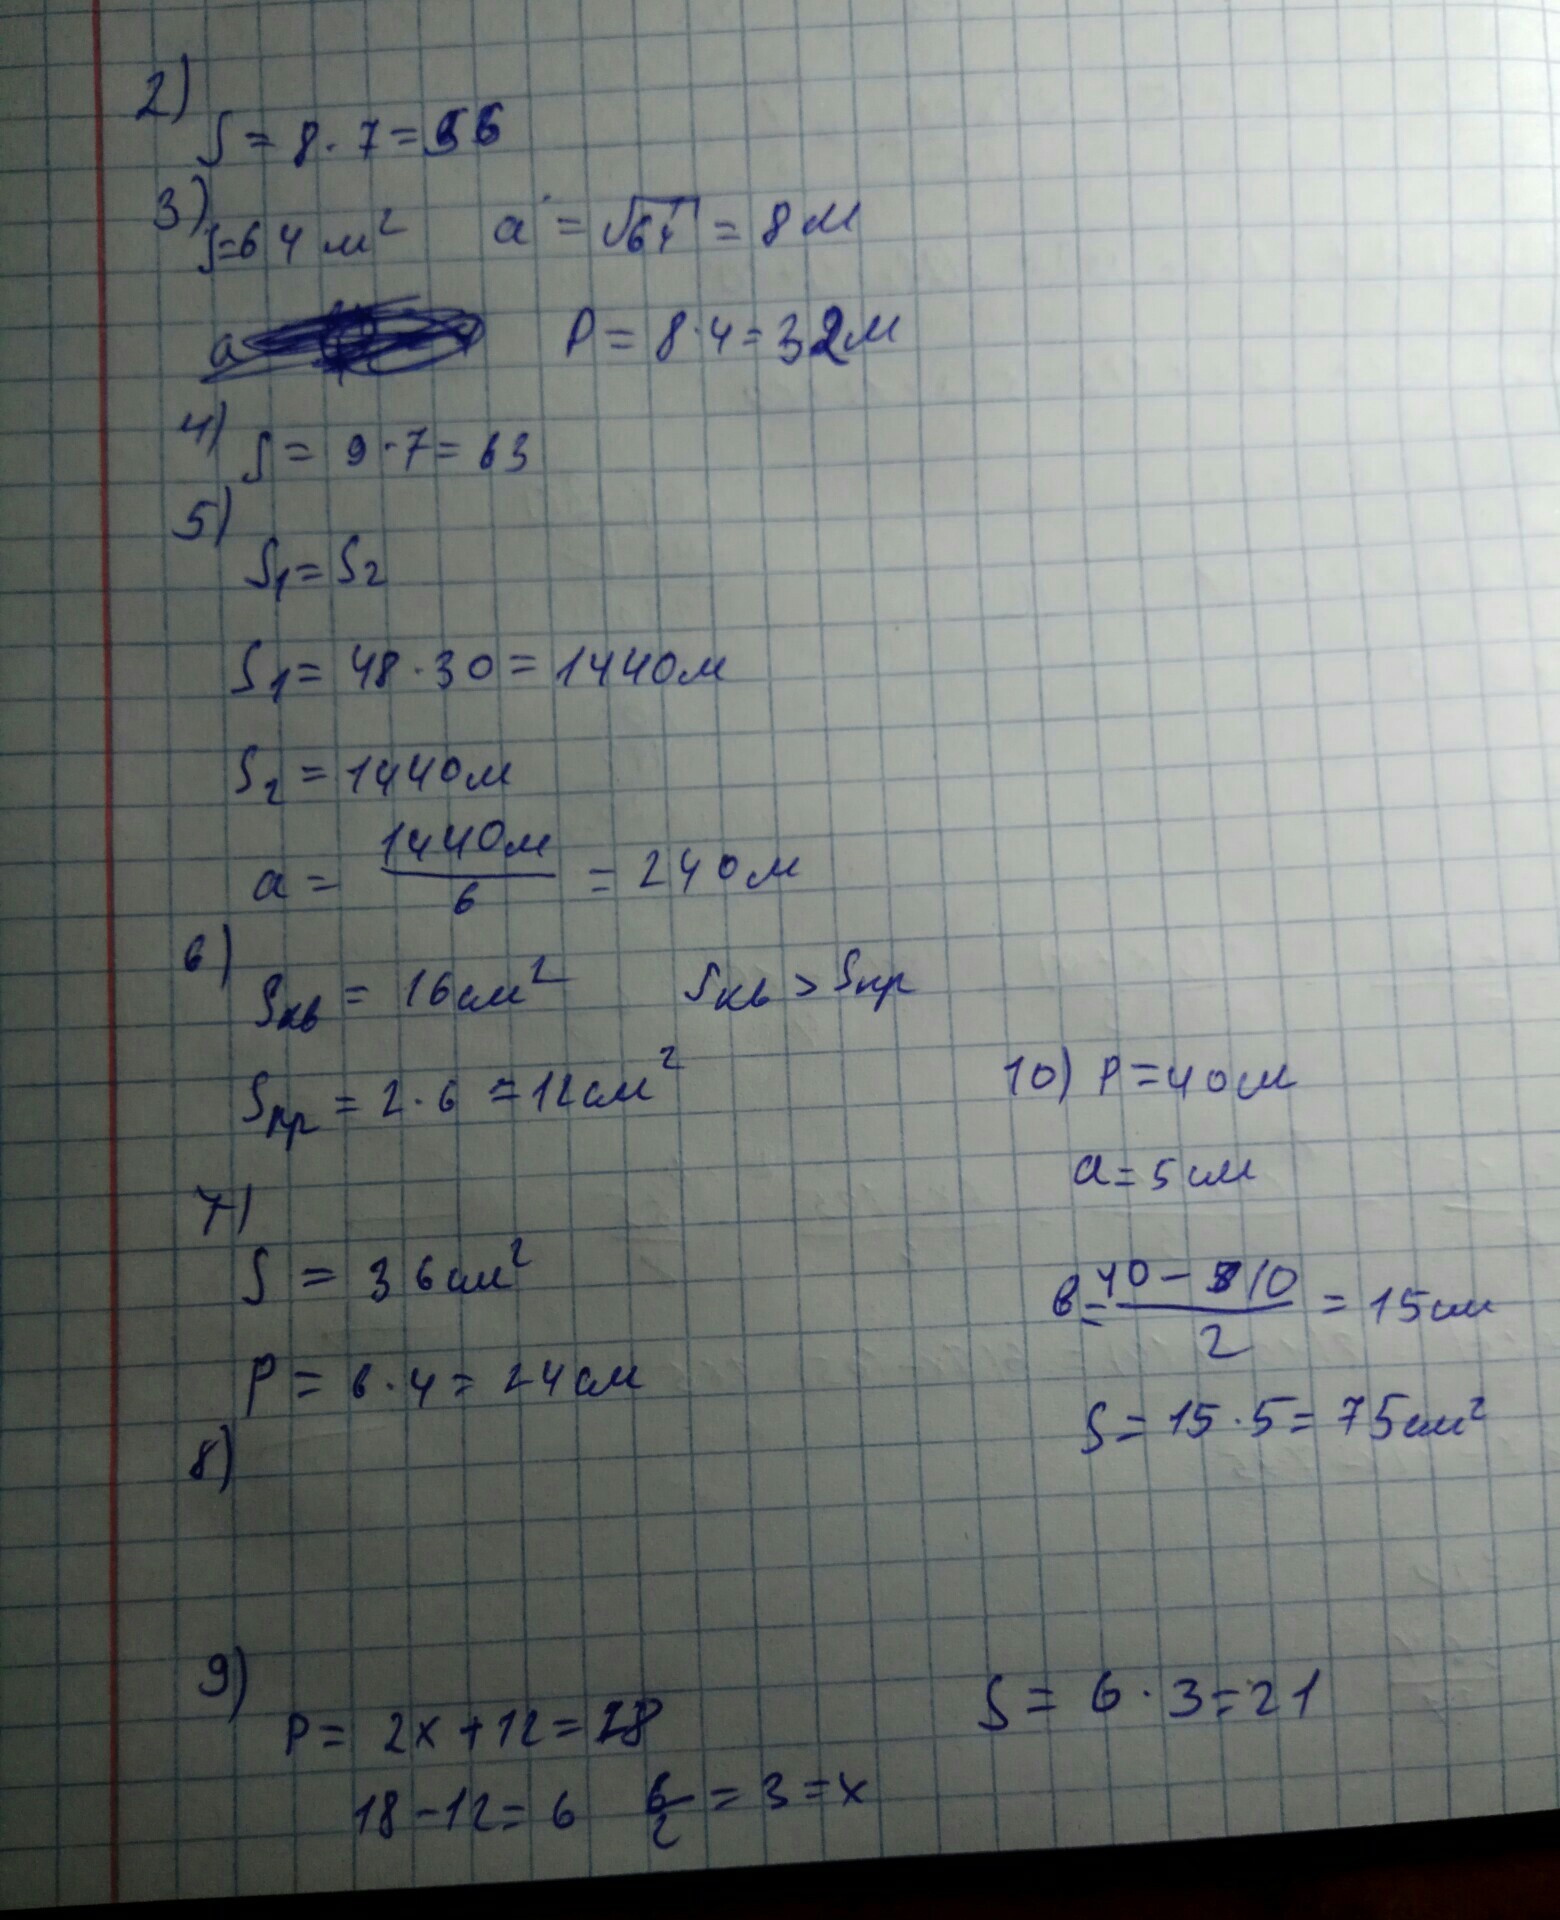 2)
S = 8 · 7 = 56
3)
S=64 м² a = √64 = 8 м
a
P = 8·4 = 32 м
4)
S = 9 · 7 = 63
5)
S₁ = S₂
S₁ = 48 · 30 = 1440 м
S₂ = 1440 м
a = 1440м/6 = 240 м
6)
Sкв = 16 см² Sкв > Sпр
Sпр = 2·6 = 12 см²
7)
S = 36 см²
P = 6·4 = 24 см
8)
9)
P = 2x + 12 = 18
18 - 12 = 6 6/2 = 3 = x
S = 6 · 3 = 21
10) P = 40 см
a = 5 см
в = 40 - 10/2 = 15 см
S = 15 · 5 = 75 см²